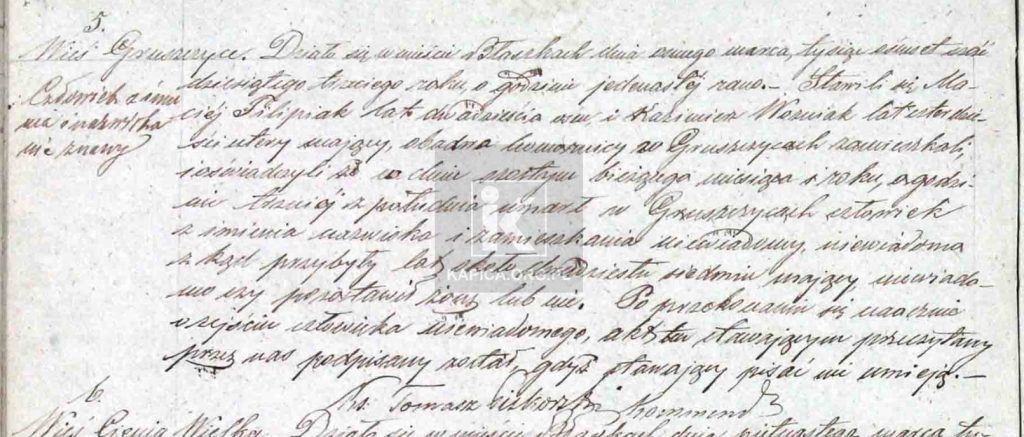 5.
Wieś Gruszczyce. Działo się w mieście Błaszkach dnia ósmego marca, tysiąc ośmset sześć
dziesiątego trzeciego roku, o godzinie jedenastéj rano.— Stawili się Ma-
Człowiek z imie
nia i nazwiska
nie znany
ciéj Filipiak lat dwadzieścia osm, i Kazimierz Woźniak lat czterdzie-
ści cztery mający, obadwa komornicy w Gruszczycach zamieszkali,
i oświadczyli że w dniu szóstym bieżącego miesiąca i roku, o godzi-
nie trzeciéj z południa umarł w Gruszczycach człowiek
z imienia nazwiska i zamieszkania niewiadomy, niewiadomo
z kąd przybyły lat siedmiu mający, niewiado-
mo czy pozostawił żonę lub nie. Po przekonaniu się naocznie
o zejściu człowieka niewiadomego, akt ten stawającym przeczytany
przez nas podpisany został, gdyż stawający pisać nie umieją.—
Ks. Tomasz Kommend
6.
Wieś Cienia Wielka. Działo się w mieście Błaszkach dnia piętnastego marca, ty-